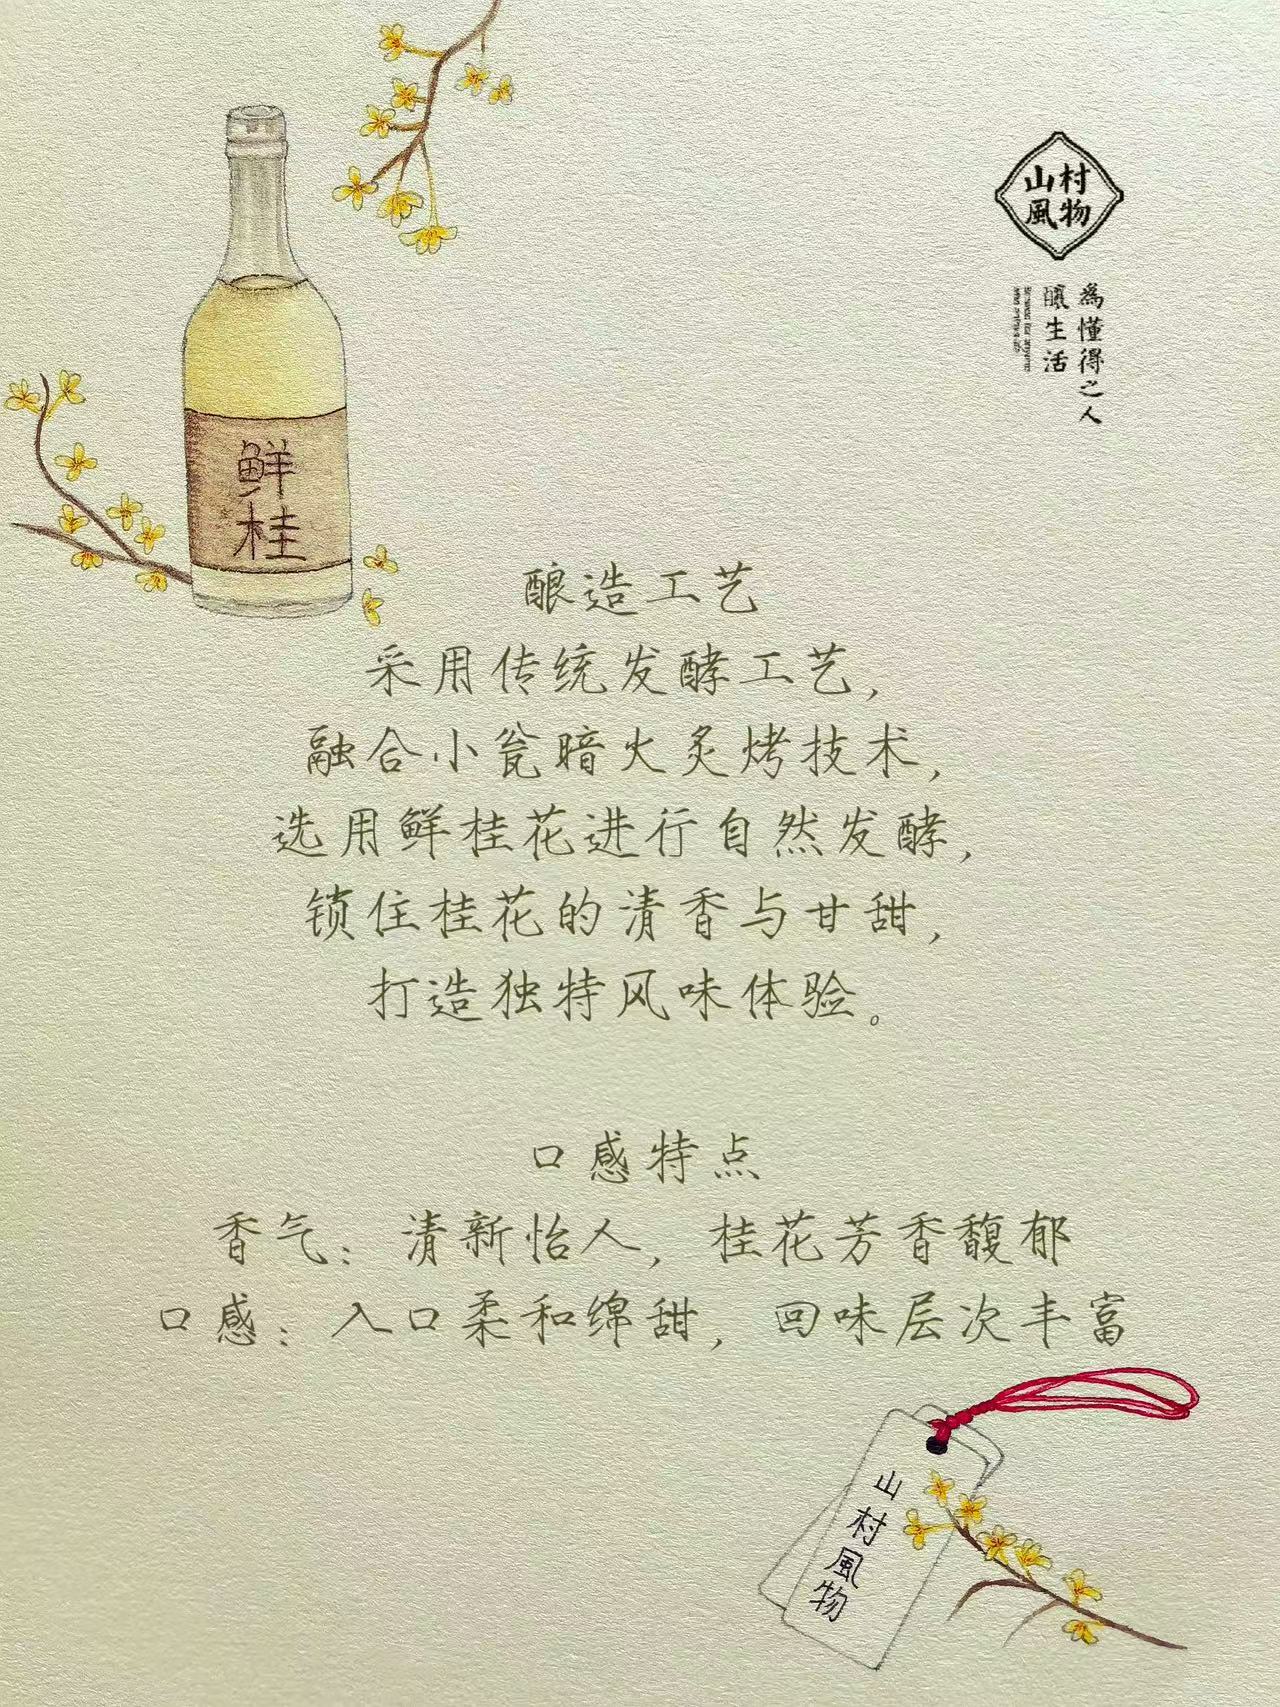 山村
風物
為懂得之人
釀生活
鲜
桂
酿造工艺
采用传统发酵工艺,
融合小瓮暗火炙烤技术,
选用鲜桂花进行自然发酵,
锁住桂花的清香与甘甜,
打造独特风味体验。
口感特点
香气:清新怡人,桂花芳香馥郁
口感:入口柔和绵甜,回味层次丰富
山村風物